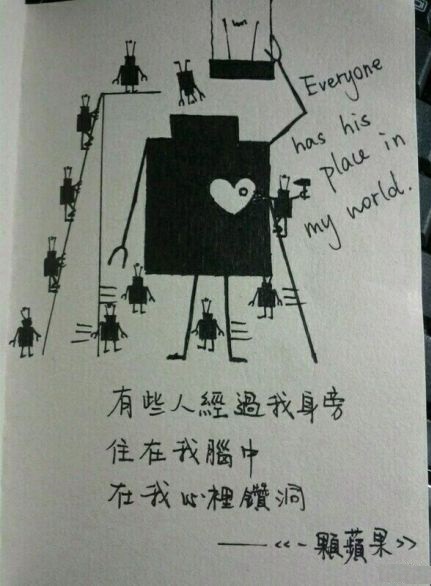 Everyone
has his
place in
my world.
有些人經過我身旁
住在我腦中
在我心裡鑽洞
——《一顆蘋果》